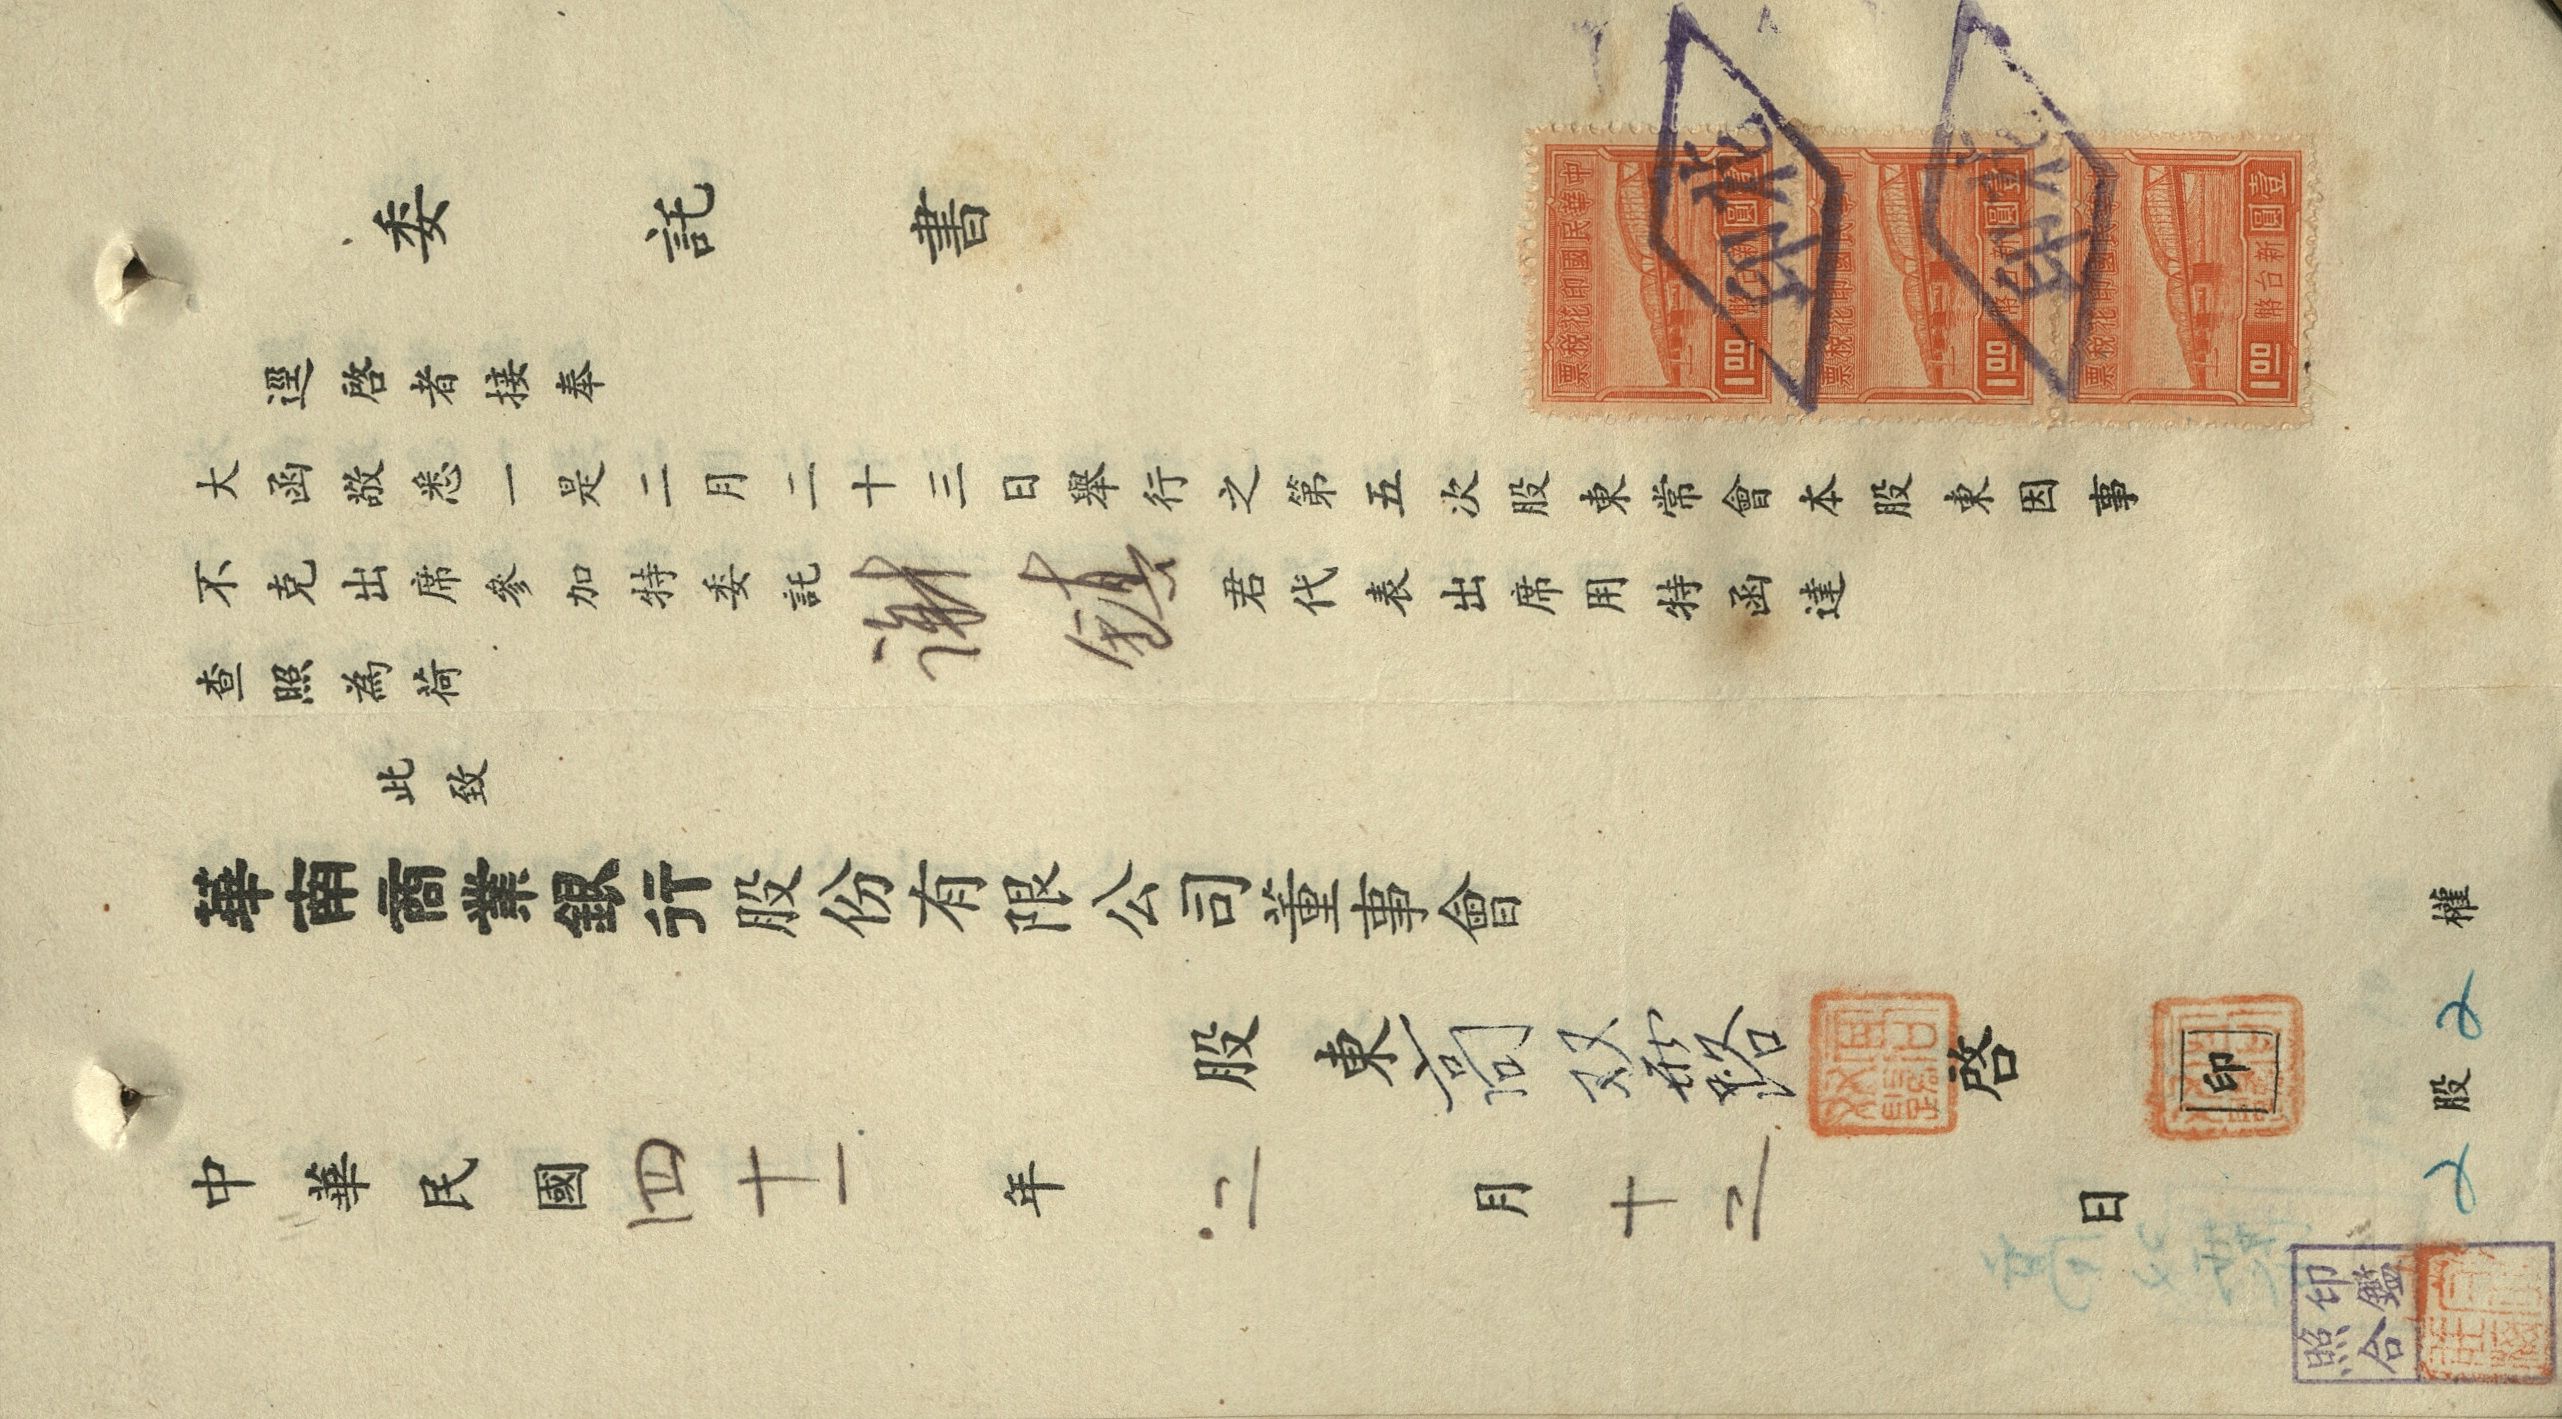 委託書
逕啓者接奉
大函敬悉一是二月二十三日舉行之第五次股東常會本股東因事
不克出席參加特委託謝鎮君代表出席用特函達
查照為荷
此致
華南商業銀行股份有限公司董事會
股東高双 啓 印
中華民國四十一年二月十二日
2股2權
印鑑
照合
中華民國印花稅票
新台幣
壹圓
1.00
中華民國印花稅票
新台幣
壹圓
1.00
中華民國印花稅票
新台幣
壹圓
1.00